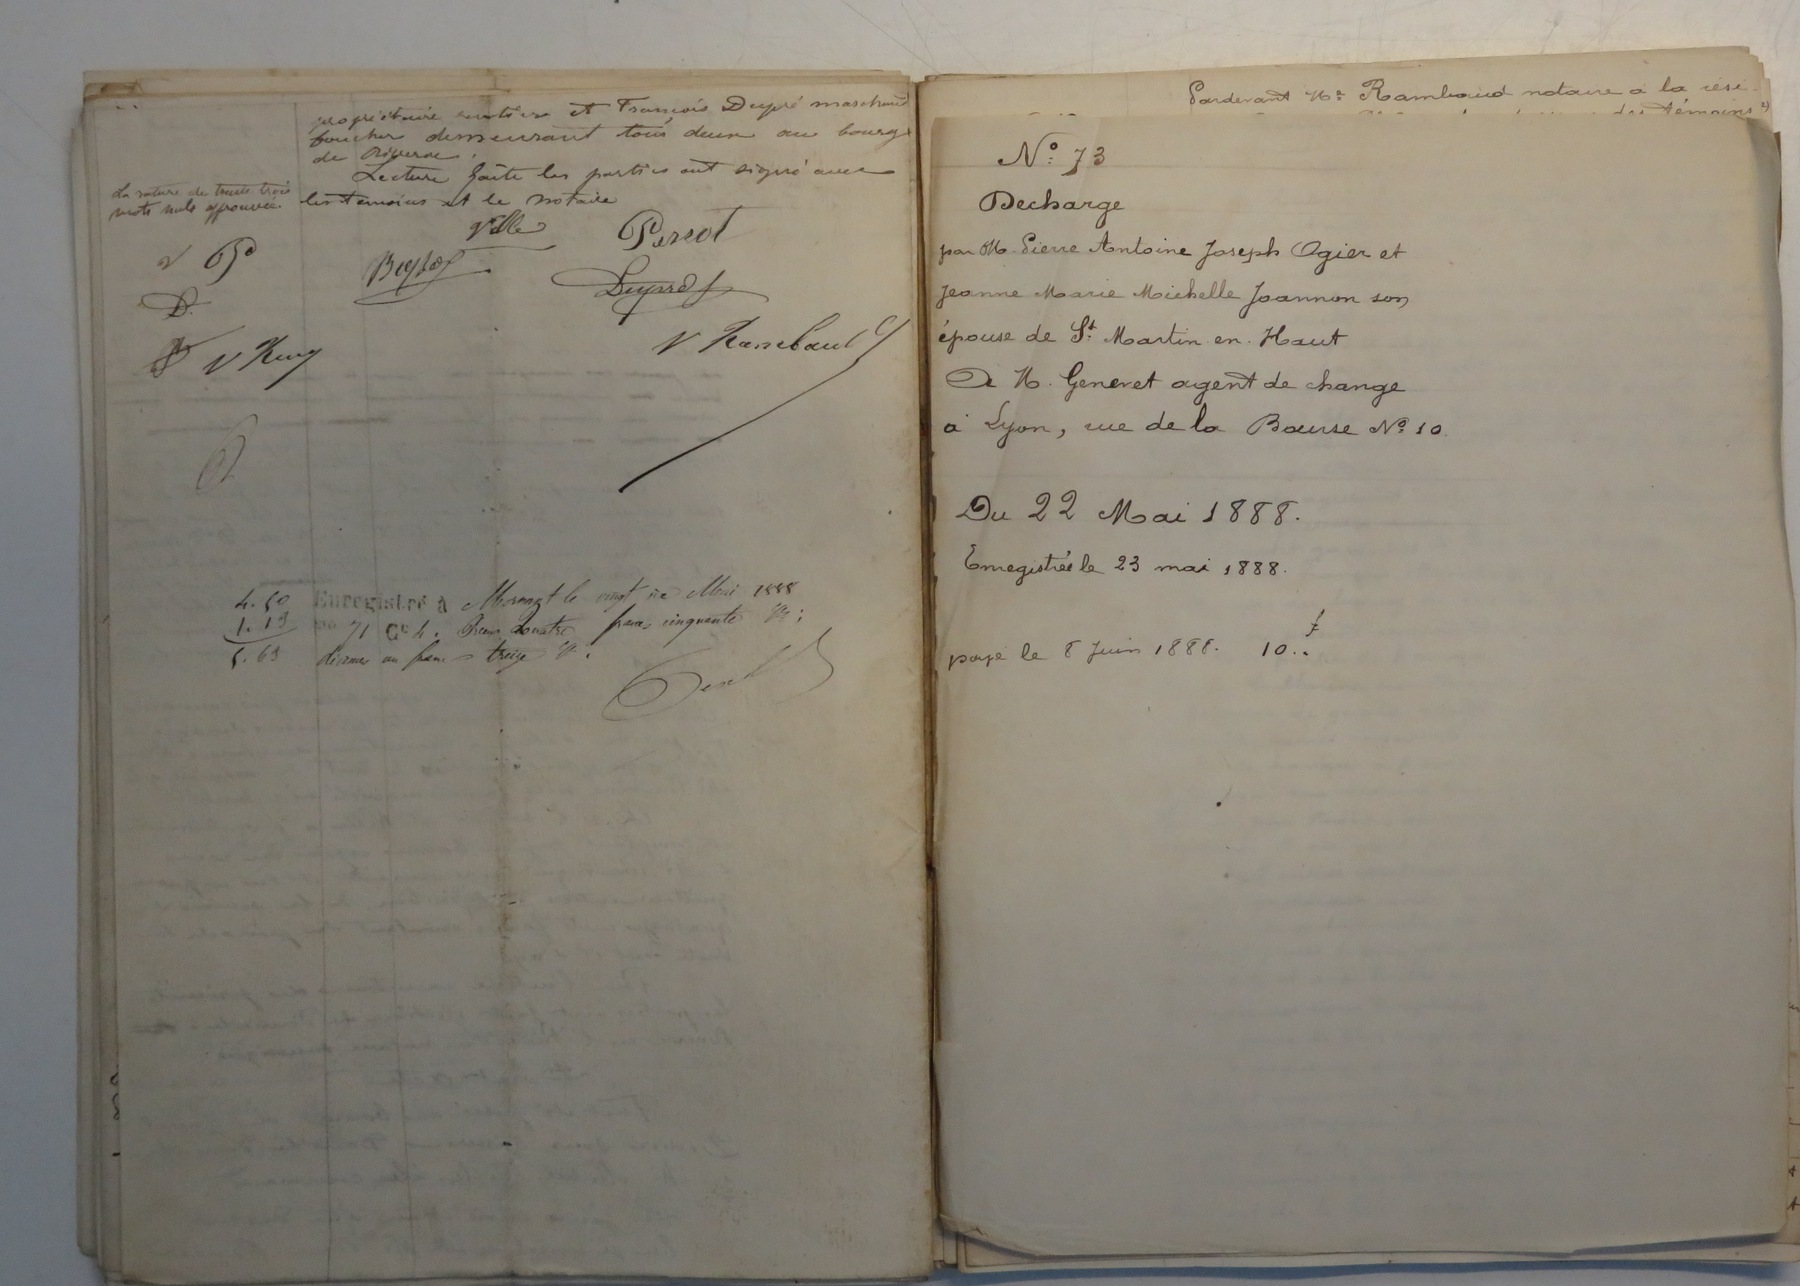 propriétaire rentier et François Dupré marchand
boucher demeurant tous deux au bourg
de Riverie.
Lecture faite les parties ont signé avec
les témoins et le notaire
La rature de trente trois
mots nuls approuvée.
Ville
Perrot
Dupré
V Rambaud
4.50
1.13
5.63
Enregistré à Mornant le vingt Mai 1888
71 Cº 4. Reçu quatre francs cinquante
décimes un franc treize
Pardevant Mº Rambaud notaire à la rési-
des témoins
Nº 73
Décharge
par M. Pierre Antoine Joseph Ogier et
Jeanne Marie Michelle Joannon son
épouse de St Martin en Haut
A M. Generet agent de change
à Lyon, rue de la Bourse Nº 10.
Du 22 Mai 1888.
Enregistrée le 23 mai 1888.
payé le 8 Juin 1888. 10..